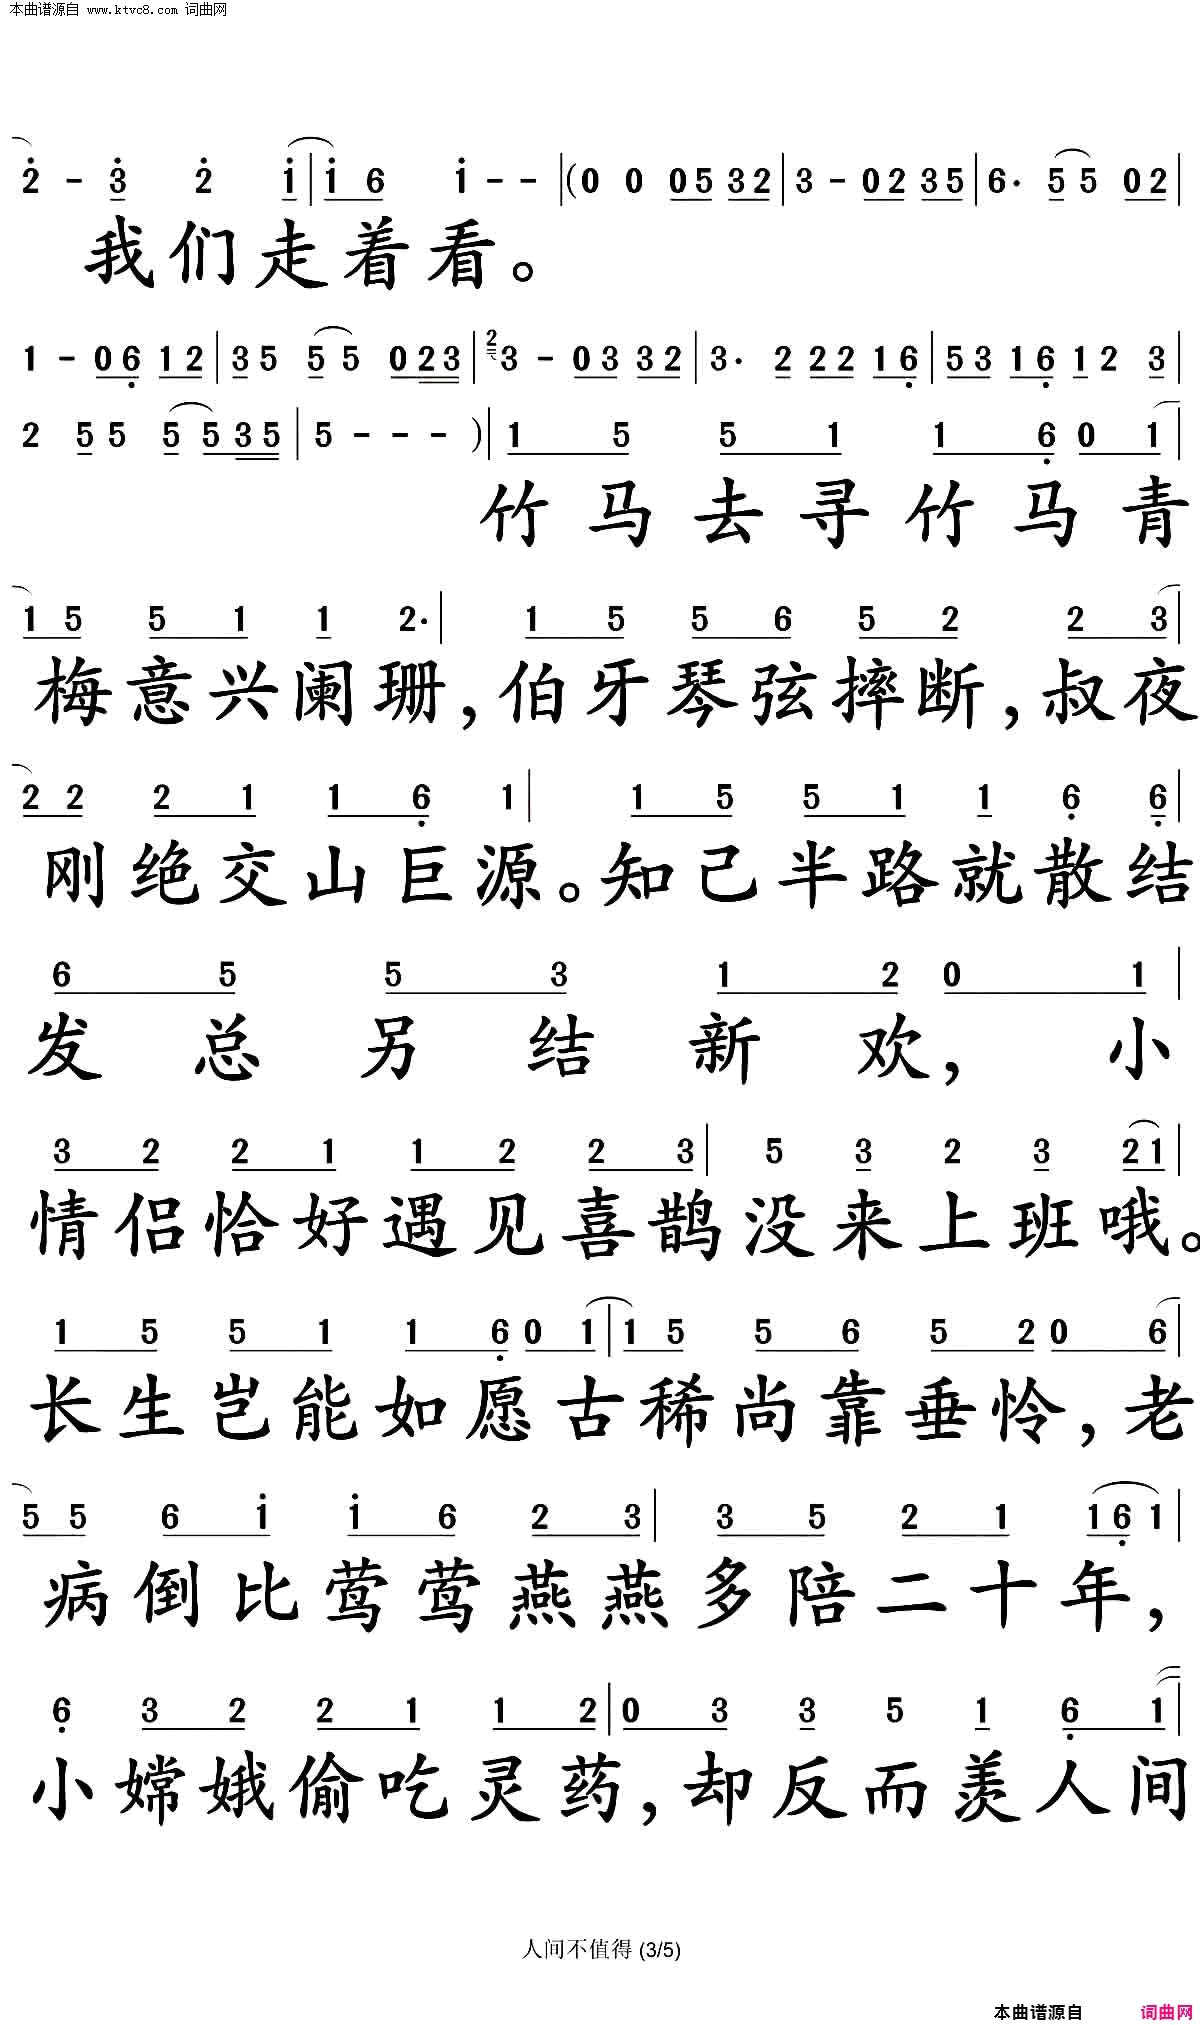 本曲谱源自 www.ktvc8.com 词曲网
2 - 3 2 1 | 1 6 1 - - | (0 0 05 32 | 3 - 02 35 | 6· 5 5 02 |
我们走着看。
1 - 06 12 | 35 5 5 023 | 2 3 - 03 32 | 3· 2 22 16 | 53 16 1 2 3 |
2 5 5 5 535 | 5 - - - ) | 1 5 5 1 1 6 0 1 |
竹马去寻竹马青
1 5 5 1 1 2· | 1 5 5 6 5 2 2 3 |
梅意兴阑珊,伯牙琴弦摔断,叔夜
2 2 2 1 1 6 1 | 1 5 5 1 1 6 6 |
刚绝交山巨源。知己半路就散结
6 5 5 3 1 2 0 1 |
发总另结新欢,小
3 2 2 1 1 2 2 3 | 5 3 2 3 21 |
情侣恰好遇见喜鹊没来上班哦。
1 5 5 1 1 6 0 1 | 1 5 5 6 5 2 0 6 |
长生岂能如愿古稀尚靠垂怜,老
5 5 6 1 1 6 2 3 | 3 5 2 1 161 |
病倒比莺莺燕燕多陪二十年,
6 3 2 2 1 1 2 | 0 3 3 5 1 6 1 |
小嫦娥偷吃灵药,却反而羡人间
人间不值得 (3/5)
本曲谱源自 词曲网